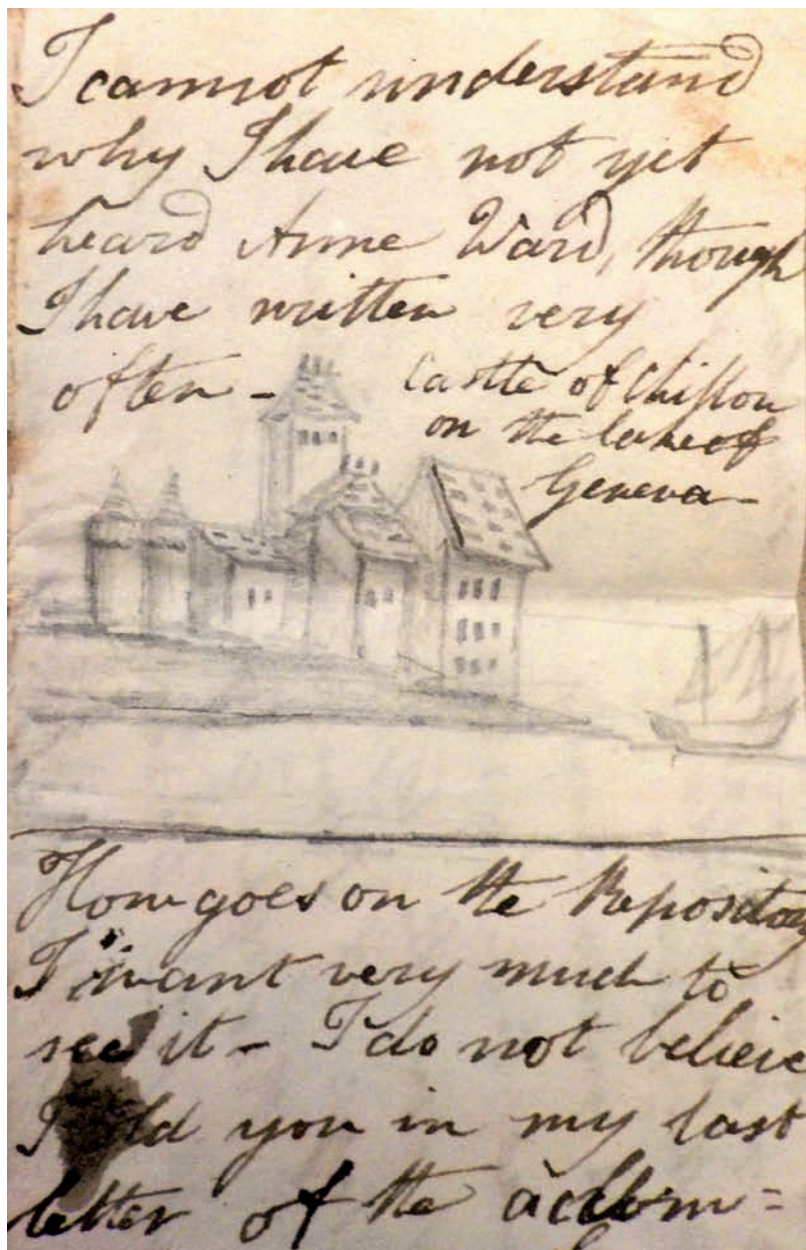 I cannot understand
why I have not yet
heard Anne Ward, though
I have written very
often -
Castle of Chillon
on the lake of
Geneva -
How goes on the Repository
I want very much to
see it - I do not believe
I told you in my last
letter of the accom=